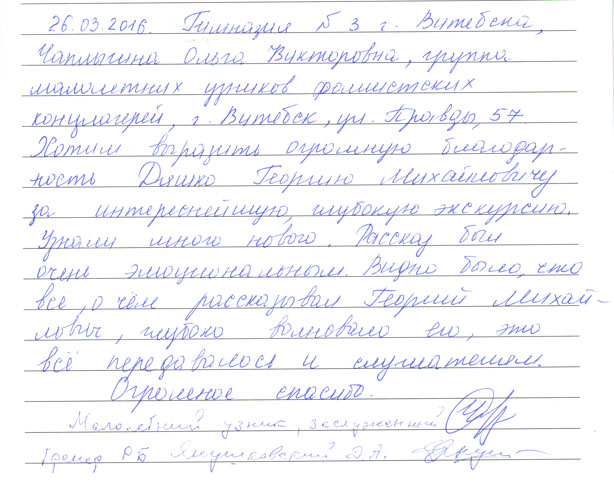 26.03.2016. Гимназия № 3 г. Витебска,
Чаплыгина Ольга Викторовна, группа
малолетних узников фашистских
концлагерей, г. Витебск, ул. Правды, 57
Хотим выразить огромную благодар-
ность Дяшко Георгию Михайловичу
за интереснейшую, глубокую экскурсию.
Узнали много нового. Рассказ был
очень эмоциональным. Видно было, что
все, о чём рассказывал Георгий Михай-
лович, глубоко волновало его, это
всё передавалось и слушателям.
Огромное спасибо.
Малолетний узник, заслуженный
тренер РБ Э.А.